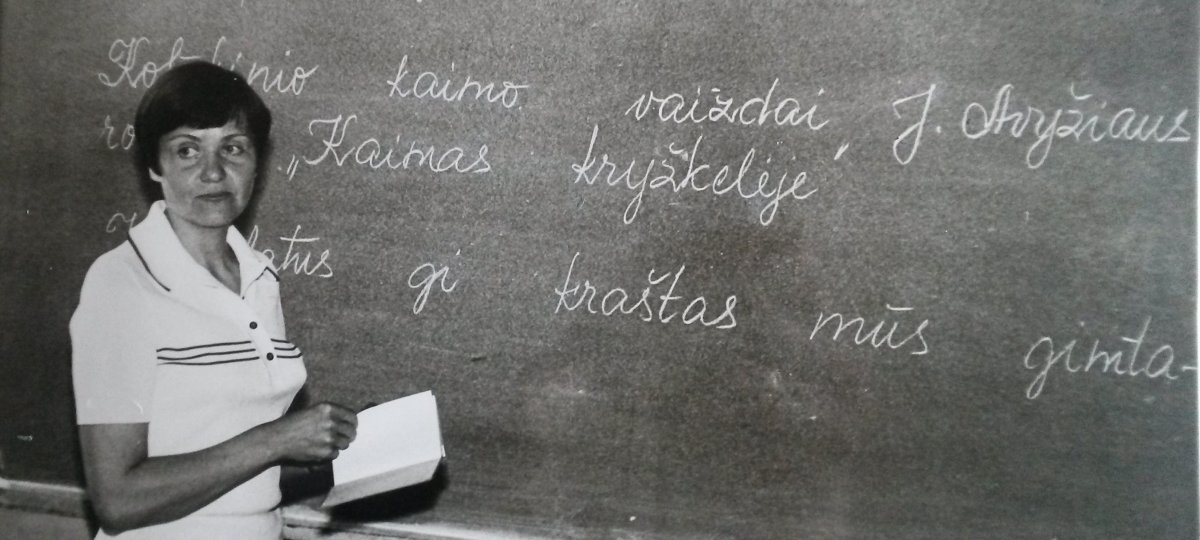 kaimo vaizdai J. Avyžiaus
„Kaimas kryžkelėje“
gi kraštas mūs gimta-